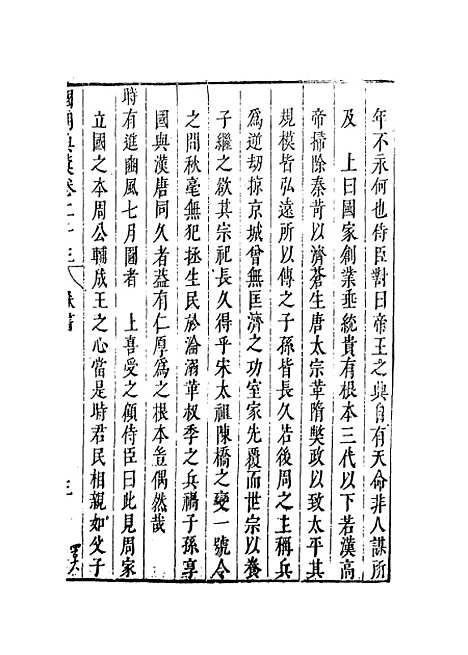 年不永何也侍臣對曰帝王之興自有天命非人謀所
及　上曰國家創業垂統貴有根本三代以下若漢高
帝掃除秦苛以濟蒼生唐太宗革隋獘政以致太平其
規模皆弘遠所以傳之子孫皆長久若後周之主稱兵
爲逆刼掠京城曾無匡濟之功室家先覆而世宗以養
子繼之欲其宗祀長久得乎宋太祖陳橋之變一號令
之間秋毫無犯拯生民於淪溺革叔季之兵禍子孫享
國與漢唐同久者葢有仁厚爲之根本豈偶然哉
時有進豳風七月圖者　上喜受之顧侍臣曰此見周家
立國之本周公輔成王之心當是時君民相親如父子
卷二十三